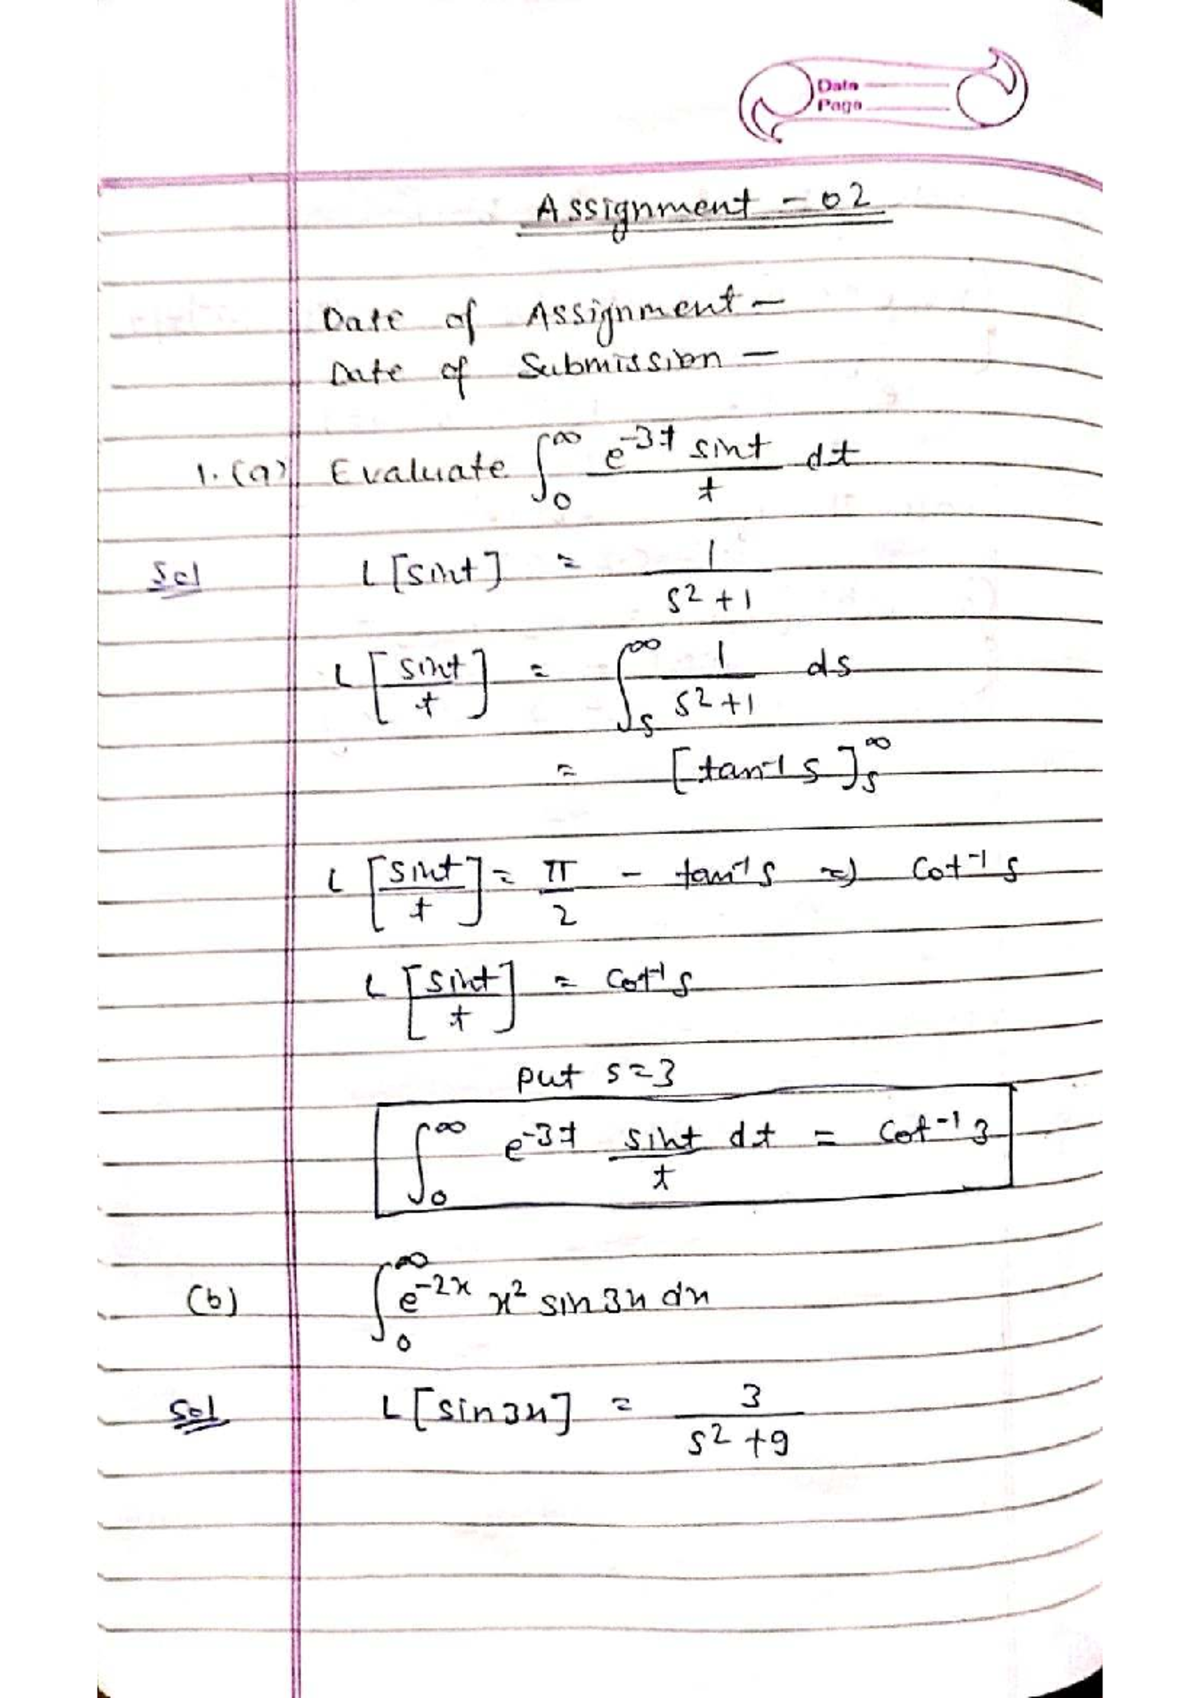 Date
Page
Assignment - 02
Date of Assignment -
Date of Submission -
1. (a) Evaluate ∫₀^∞ e^-3t sint / t dt
Sol L[sint] = 1 / s²+1
L[sint / t] = ∫ₛ^∞ 1 / s²+1 ds
= [tan⁻¹ s]ₛ^∞
L[sint / t] = π/2 - tan⁻¹ s => cot⁻¹ s
L[sint / t] = cot⁻¹ s
put s=3
∫₀^∞ e^-3t sint / t dt = cot⁻¹ 3
(b) ∫₀^∞ e^-2x x² sin 3x dx
Sol L[sin3x] = 3 / s²+9